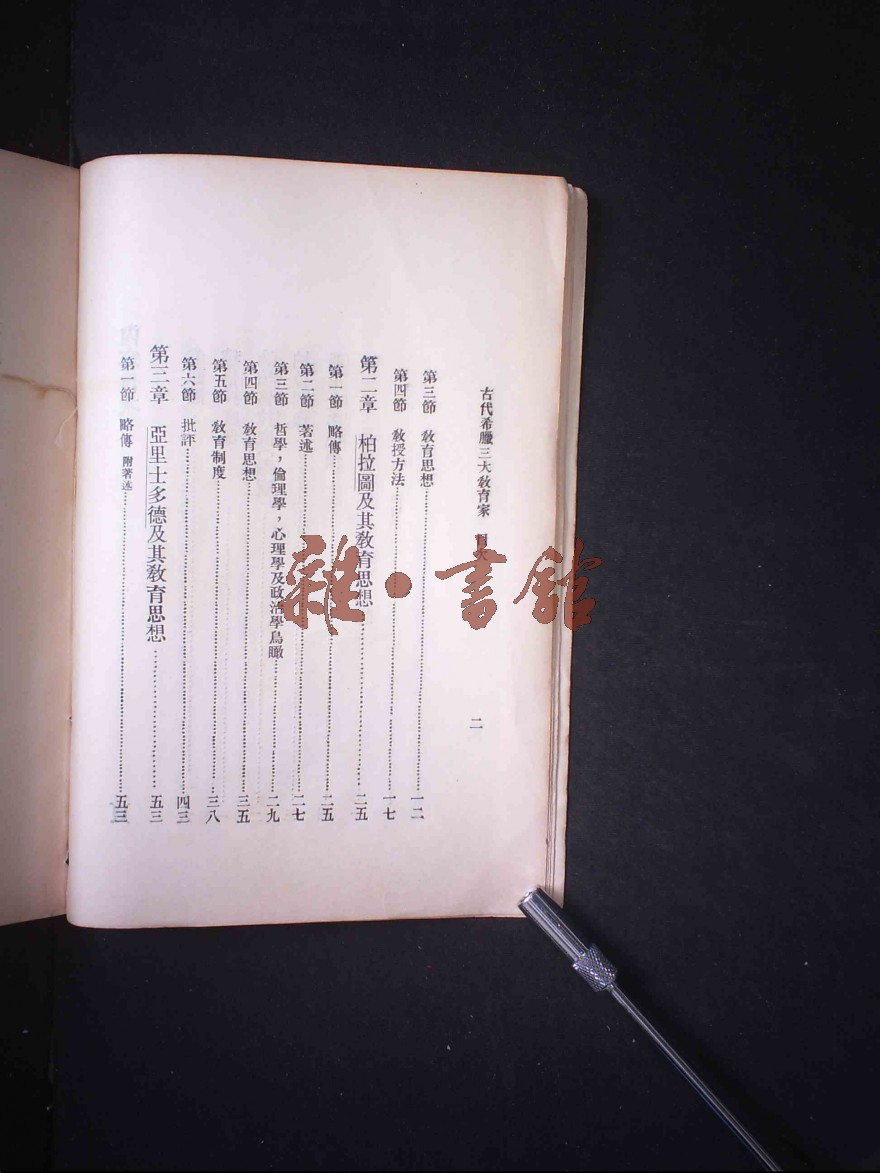 古代希臘三大敎育家 目次 二
第三節 敎育思想……一二
第四節 敎授方法……一七
第二章 柏拉圖及其敎育思想……二五
第一節 略傳……二五
第二節 著述……二七
第三節 哲學，倫理學，心理學及政治學鳥瞰……二九
第四節 敎育思想……三五
第五節 敎育制度……三八
第六節 批評……四三
第三章 亞里士多德及其敎育思想……五三
第一節 略傳 附著述……五三
雜·書館